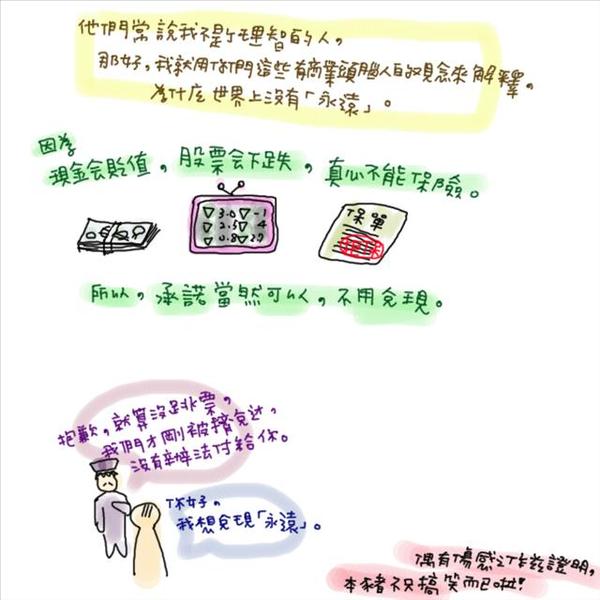 他們常說我不是個理智的人，
那好，我就用你們這些有商業頭腦人的觀念來解釋，
為什麼世界上沒有「永遠」。
因為
現金会貶值，股票会下跌，真心不能保險。
▽ 3.0 ▽ -1
▽ 2.5 ▽ 4
▽ 0.8 ▽ 2.7
保單
所以，承諾當然可以，不用兌現。
抱歉，就算沒跳票，
我們才剛被擠兌过，
沒有辦法付給你。
你好。
我想兌現「永遠」。
偶有傷感之作茲證明，
本豬不只搞笑而已啦！